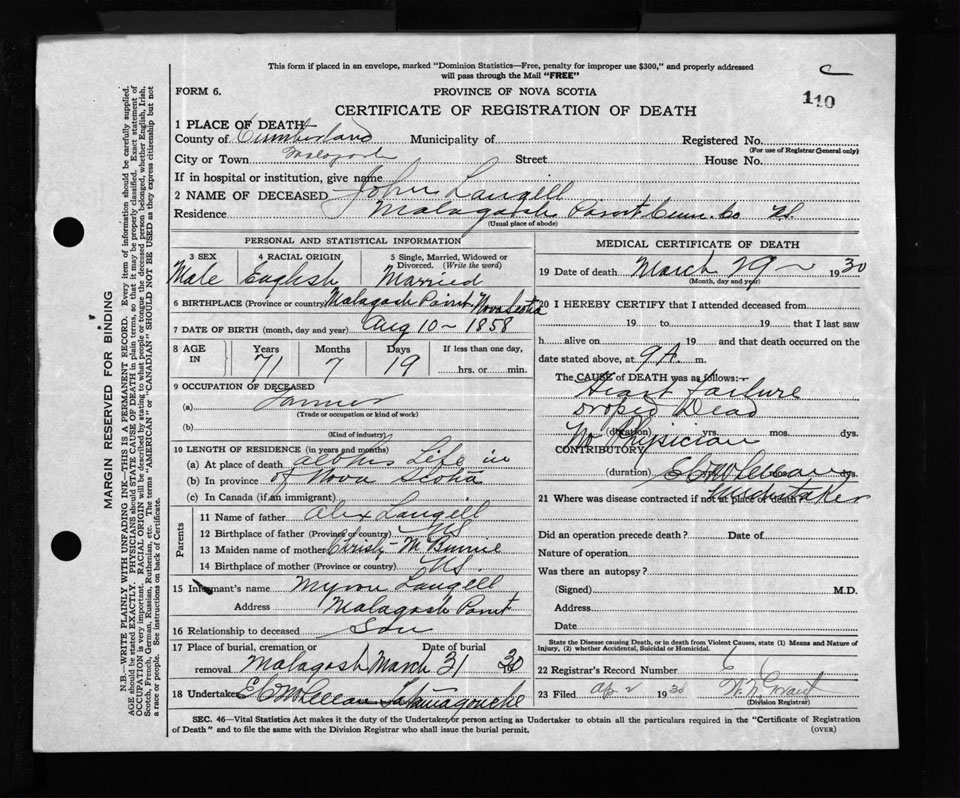 This form if placed in an envelope, marked "Dominion Statistics—Free, penalty for improper use $300," and properly addressed
will pass through the Mail "FREE"
FORM 6.
PROVINCE OF NOVA SCOTIA
110
CERTIFICATE OF REGISTRATION OF DEATH
1 PLACE OF DEATH
County of Cumberland Municipality of Registered No.
(For use of Registrar General only)
City or Town Malagash Street House No.
If in hospital or institution, give name
2 NAME OF DECEASED John Langill
Residence Malagash Point Cum. Co NS.
(Usual place of abode)
PERSONAL AND STATISTICAL INFORMATION
3 SEX 4 RACIAL ORIGIN 5 Single, Married, Widowed or
Divorced. (Write the word)
Male English Married
6 BIRTHPLACE (Province or country) Malagash Point Nova Scotia
7 DATE OF BIRTH (month, day and year) Aug 10 ~ 1858
8 AGE IN Years Months Days If less than one day,
71 7 19 hrs. or min.
9 OCCUPATION OF DECEASED
(a) Farmer
(Trade or occupation or kind of work)
(b)
(Kind of industry)
10 LENGTH OF RESIDENCE (in years and months)
(a) At place of death all his Life in
(b) In province of Nova Scotia
(c) In Canada (if an immigrant)
Parents
11 Name of father Alex Langill
12 Birthplace of father (Province or country) NS
13 Maiden name of mother Christy
14 Birthplace of mother (Province or country) NS.
15 Informant's name Myron Langill
Address Malagash Point
16 Relationship to deceased Son
17 Place of burial, cremation or Date of burial
removal Malagash March 31 30
18 Undertaker E C McLellan Tatamagouche
MEDICAL CERTIFICATE OF DEATH
19 Date of death March 29 ~ 1930
(Month, day and year)
20 I HEREBY CERTIFY that I attended deceased from
19 to 19 that I last saw
h alive on 19 and that death occurred on the
date stated above, at 9 A. m.
The CAUSE of DEATH was as follows:—
Heart failure
droped Dead
(duration) yrs. mos. dys.
No Physician
CONTRIBUTORY
(duration) dys.
E C McLellan
Undertaker
21 Where was disease contracted if not at place of death?
Did an operation precede death? Date of
Nature of operation
Was there an autopsy?
(Signed) M.D.
Address
Date
State the Disease causing Death, or in death from Violent Causes, state (1) Means and Nature of
Injury, (2) whether Accidental, Suicidal or Homicidal.
22 Registrar's Record Number
23 Filed Ap 2 1930 Grant
(Division Registrar)
SEC. 46—Vital Statistics Act makes it the duty of the Undertaker or person acting as Undertaker to obtain all the particulars required in the "Certificate of Registration
of Death" and to file the same with the Division Registrar who shall issue the burial permit.
(OVER)
MARGIN RESERVED FOR BINDING
N.B.—WRITE PLAINLY WITH UNFADING INK—THIS IS A PERMANENT RECORD. Every item of information should be carefully supplied.
AGE should be stated EXACTLY. PHYSICIANS should STATE CAUSE OF DEATH in plain terms, so that it may be properly classified. Exact statement of
OCCUPATION is very important. RACIAL ORIGIN will be described by stating to what people or tongue the deceased person belonged, whether English, Irish,
Scotch, French, German, Russian, Ruthenian, etc. The terms "AMERICAN" or "CANADIAN" SHOULD NOT BE USED as they express citizenship but not
a race or people. See instructions on back of Certificate.